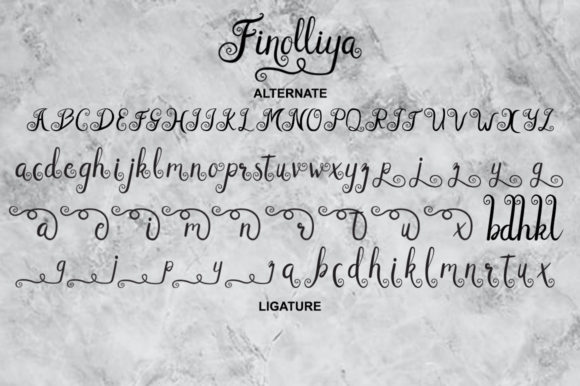 Finolliya
ALTERNATE
A B C D E F G H I J K L M N O P Q R I T U V W X Y L
a c d e g h i j k l m n o p r s t u v w x y z p j z y g
a c i m n r t u x b d h k l
g j p y z a b c d h i k l m n r t u x
LIGATURE